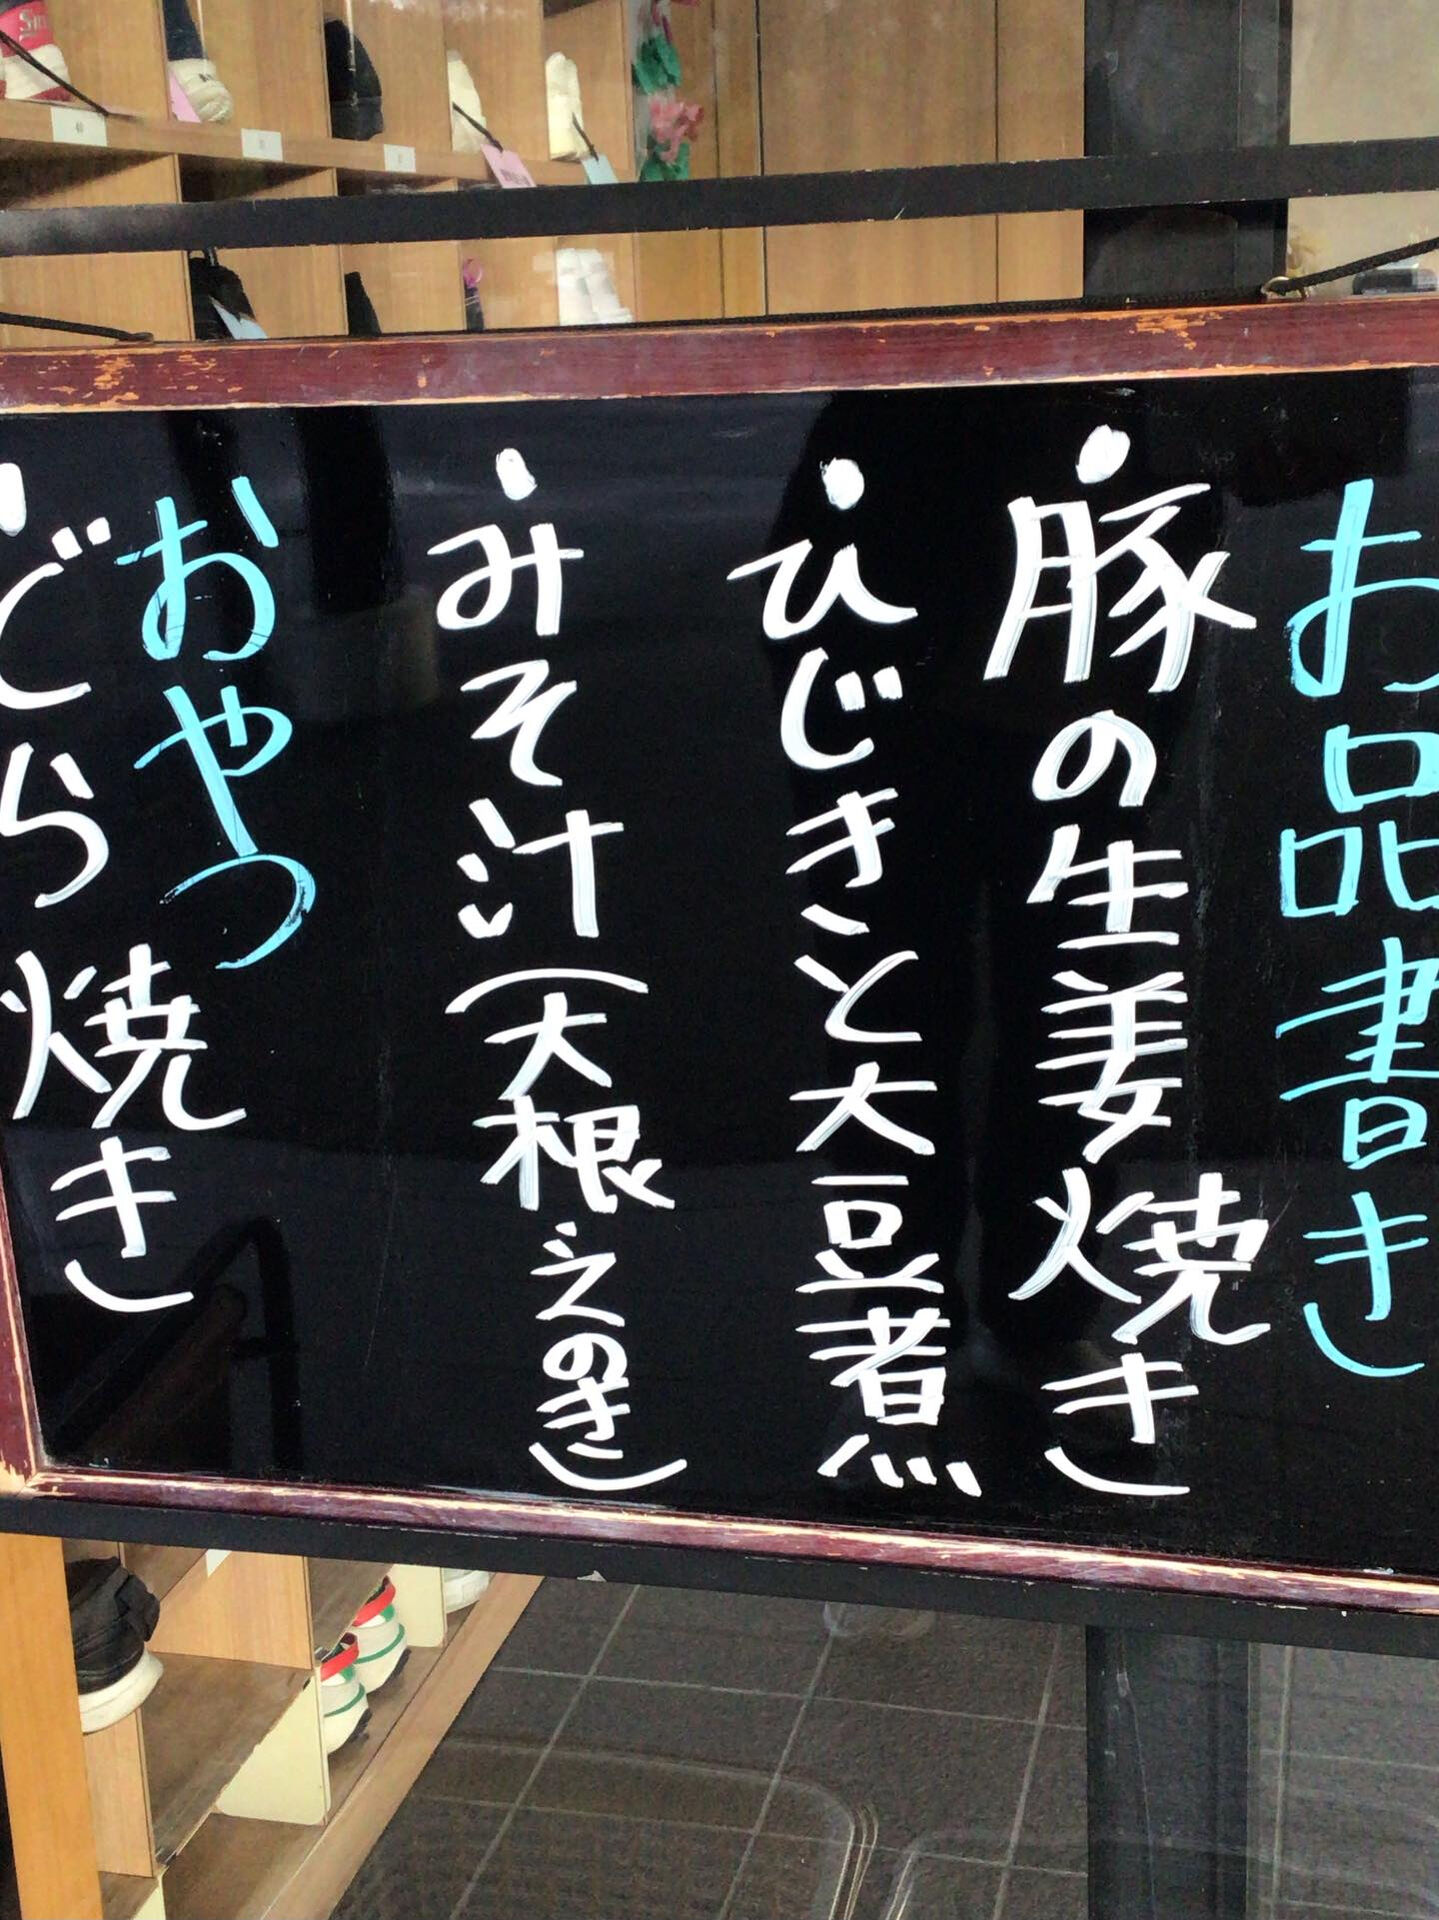 お品書き
・豚の生姜焼き
・ひじきと大豆煮
・みそ汁(大根、えのき)
おやつ
・どら焼き